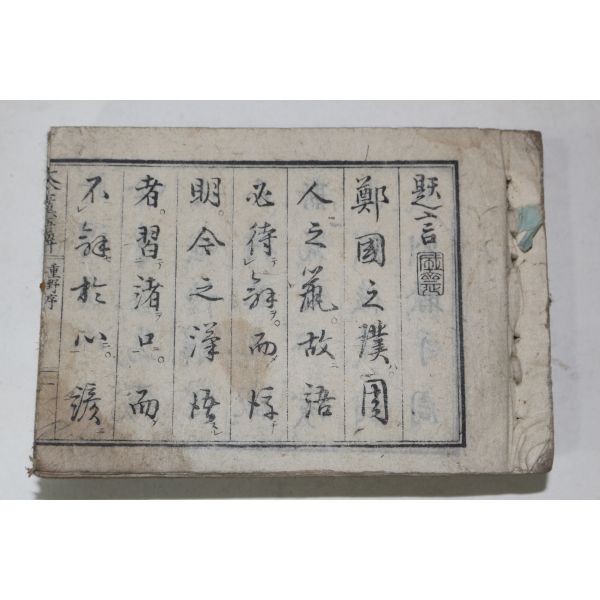 題言
鄭國之璞周
人之鼠。故語
必待解而後
明。今之漢語
者。習諸口。而
不解於心。
重野序